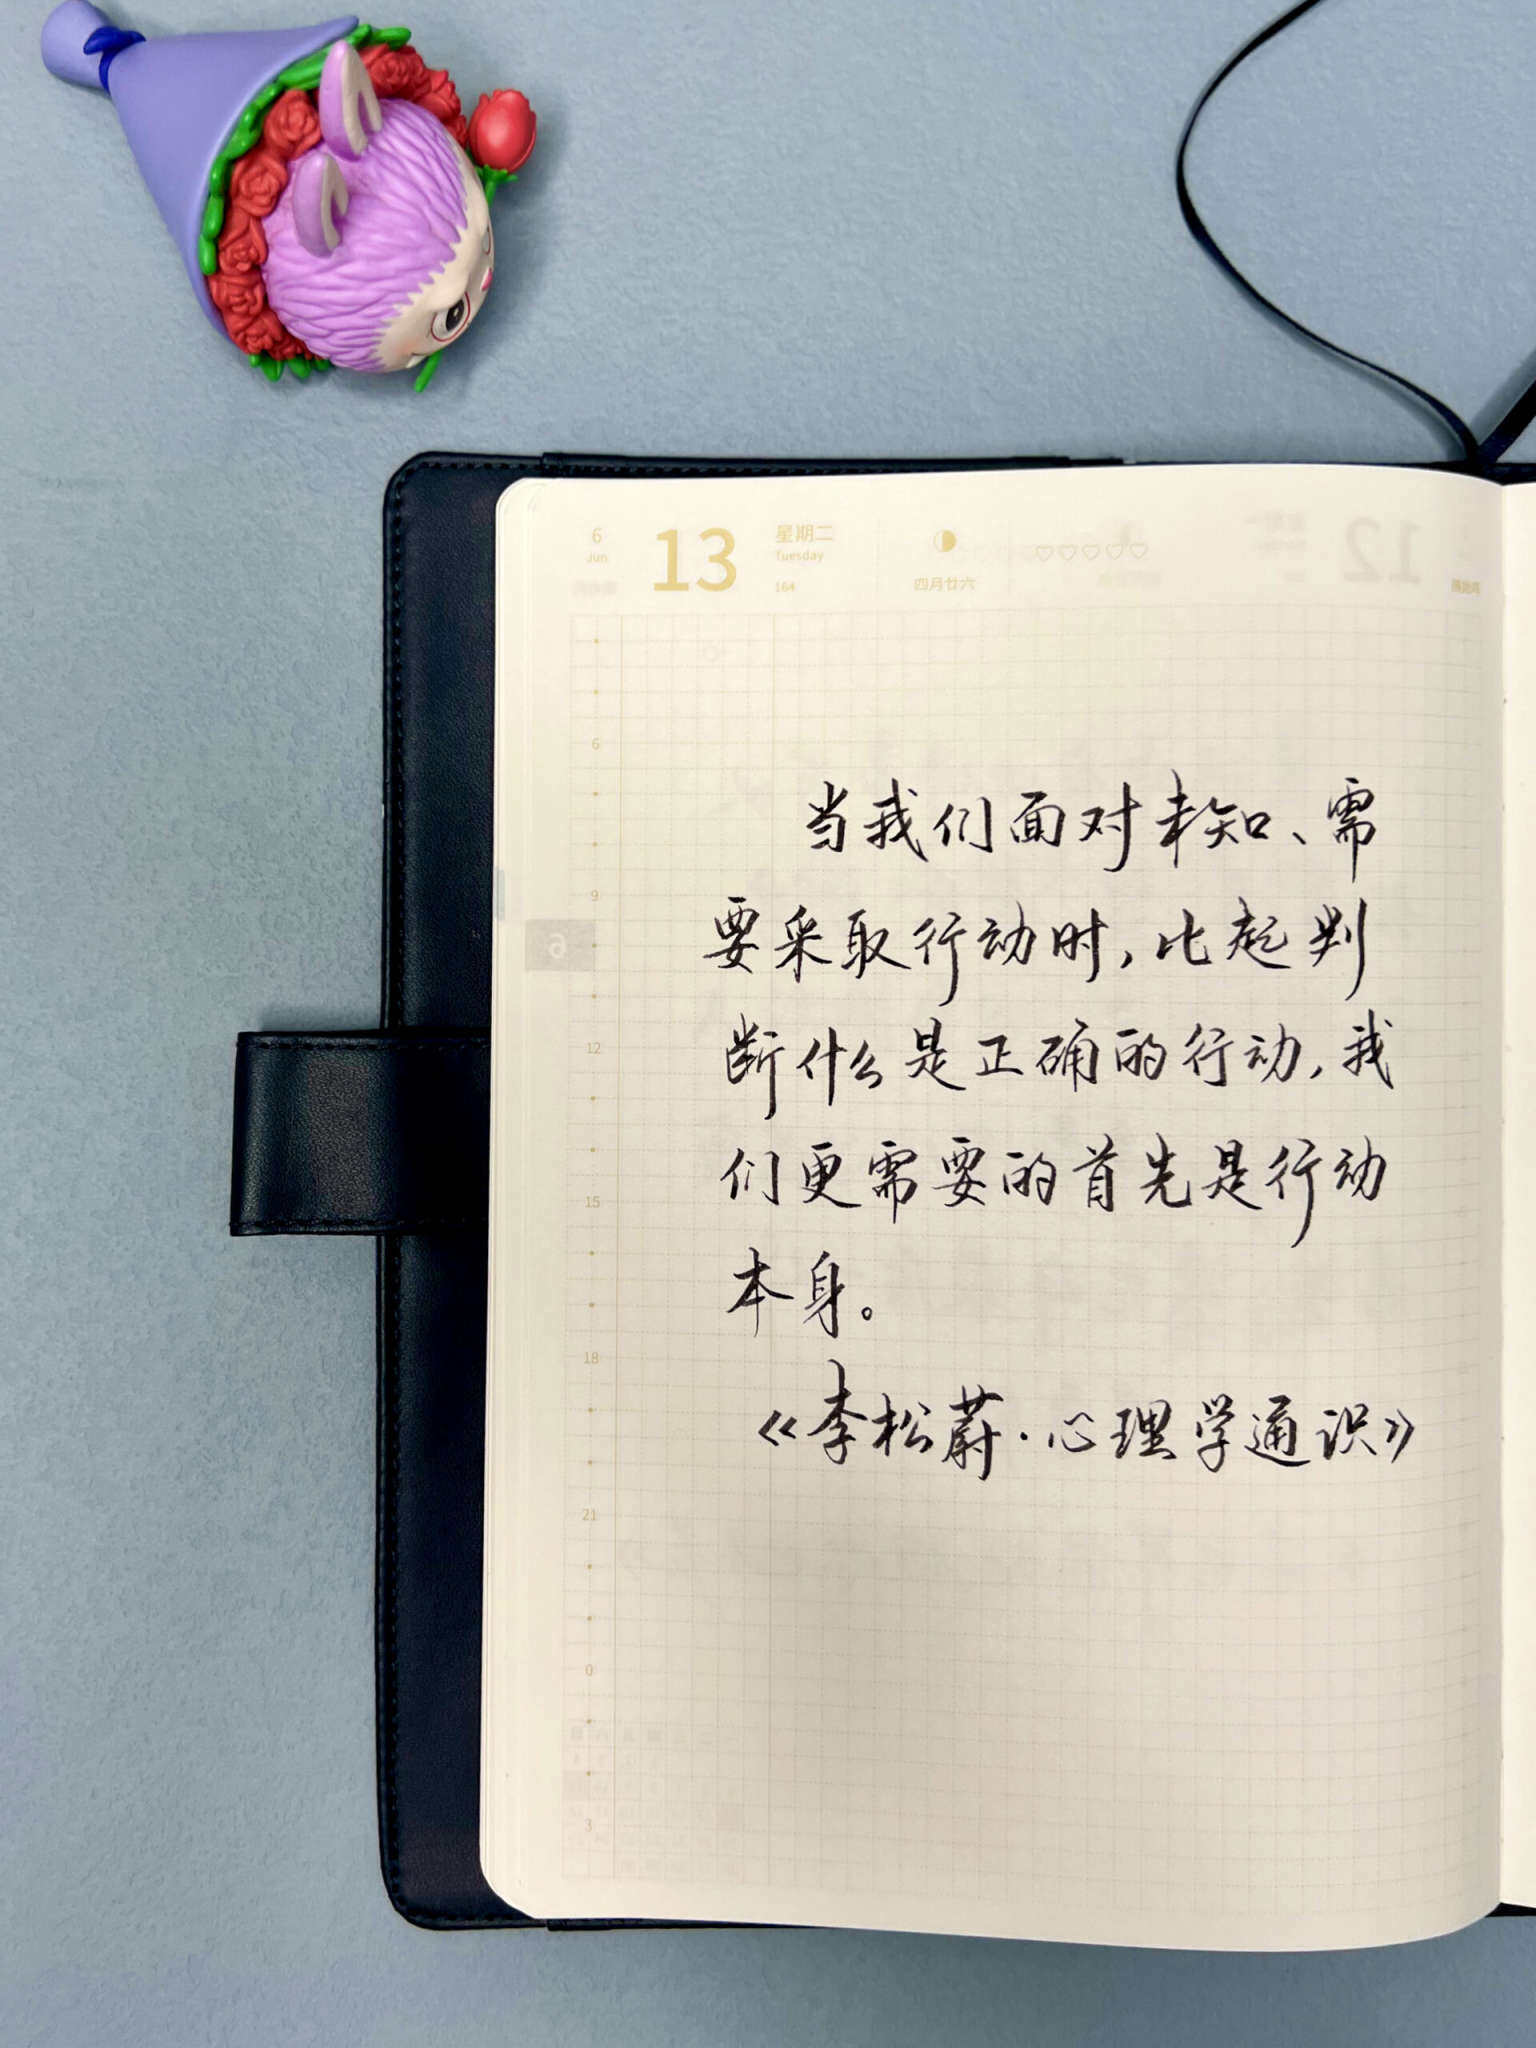 6
Jun
13
星期二
Tuesday
164
四月廿六
6
当我们面对未知、需
9
要采取行动时，比起判
断什么是正确的行动，我
12
们更需要的首先是行动
15
本身。
18
《李松蔚·心理学通识》
21
0
3